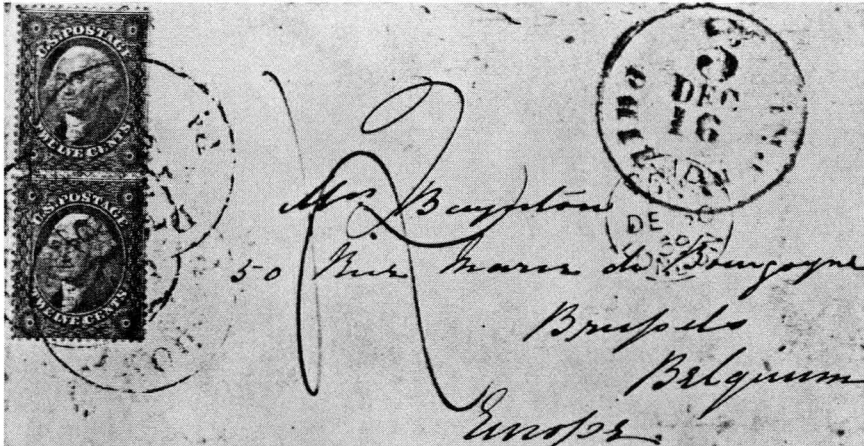 U.S. POSTAGE
TWELVE CENTS
U.S. POSTAGE
TWELVE CENTS
PA
3
DEC
16
PAID
DE
Mrs Boynton
50 Rue Marie de Bourgogne
Brussels
Belgium
Europe